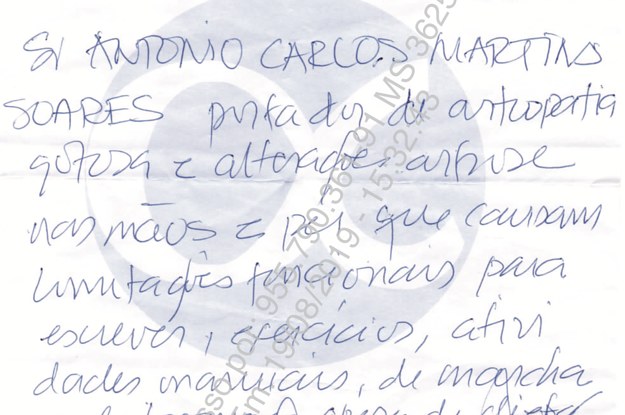 Sr ANTONIO CARLOS MARTINS
SOARES portador de artropatia
gotosa e alterações artrose
nas mãos e pés que causam
limitações funcionais para
escrever, exercícios, ativi
dades manuais, de marcha